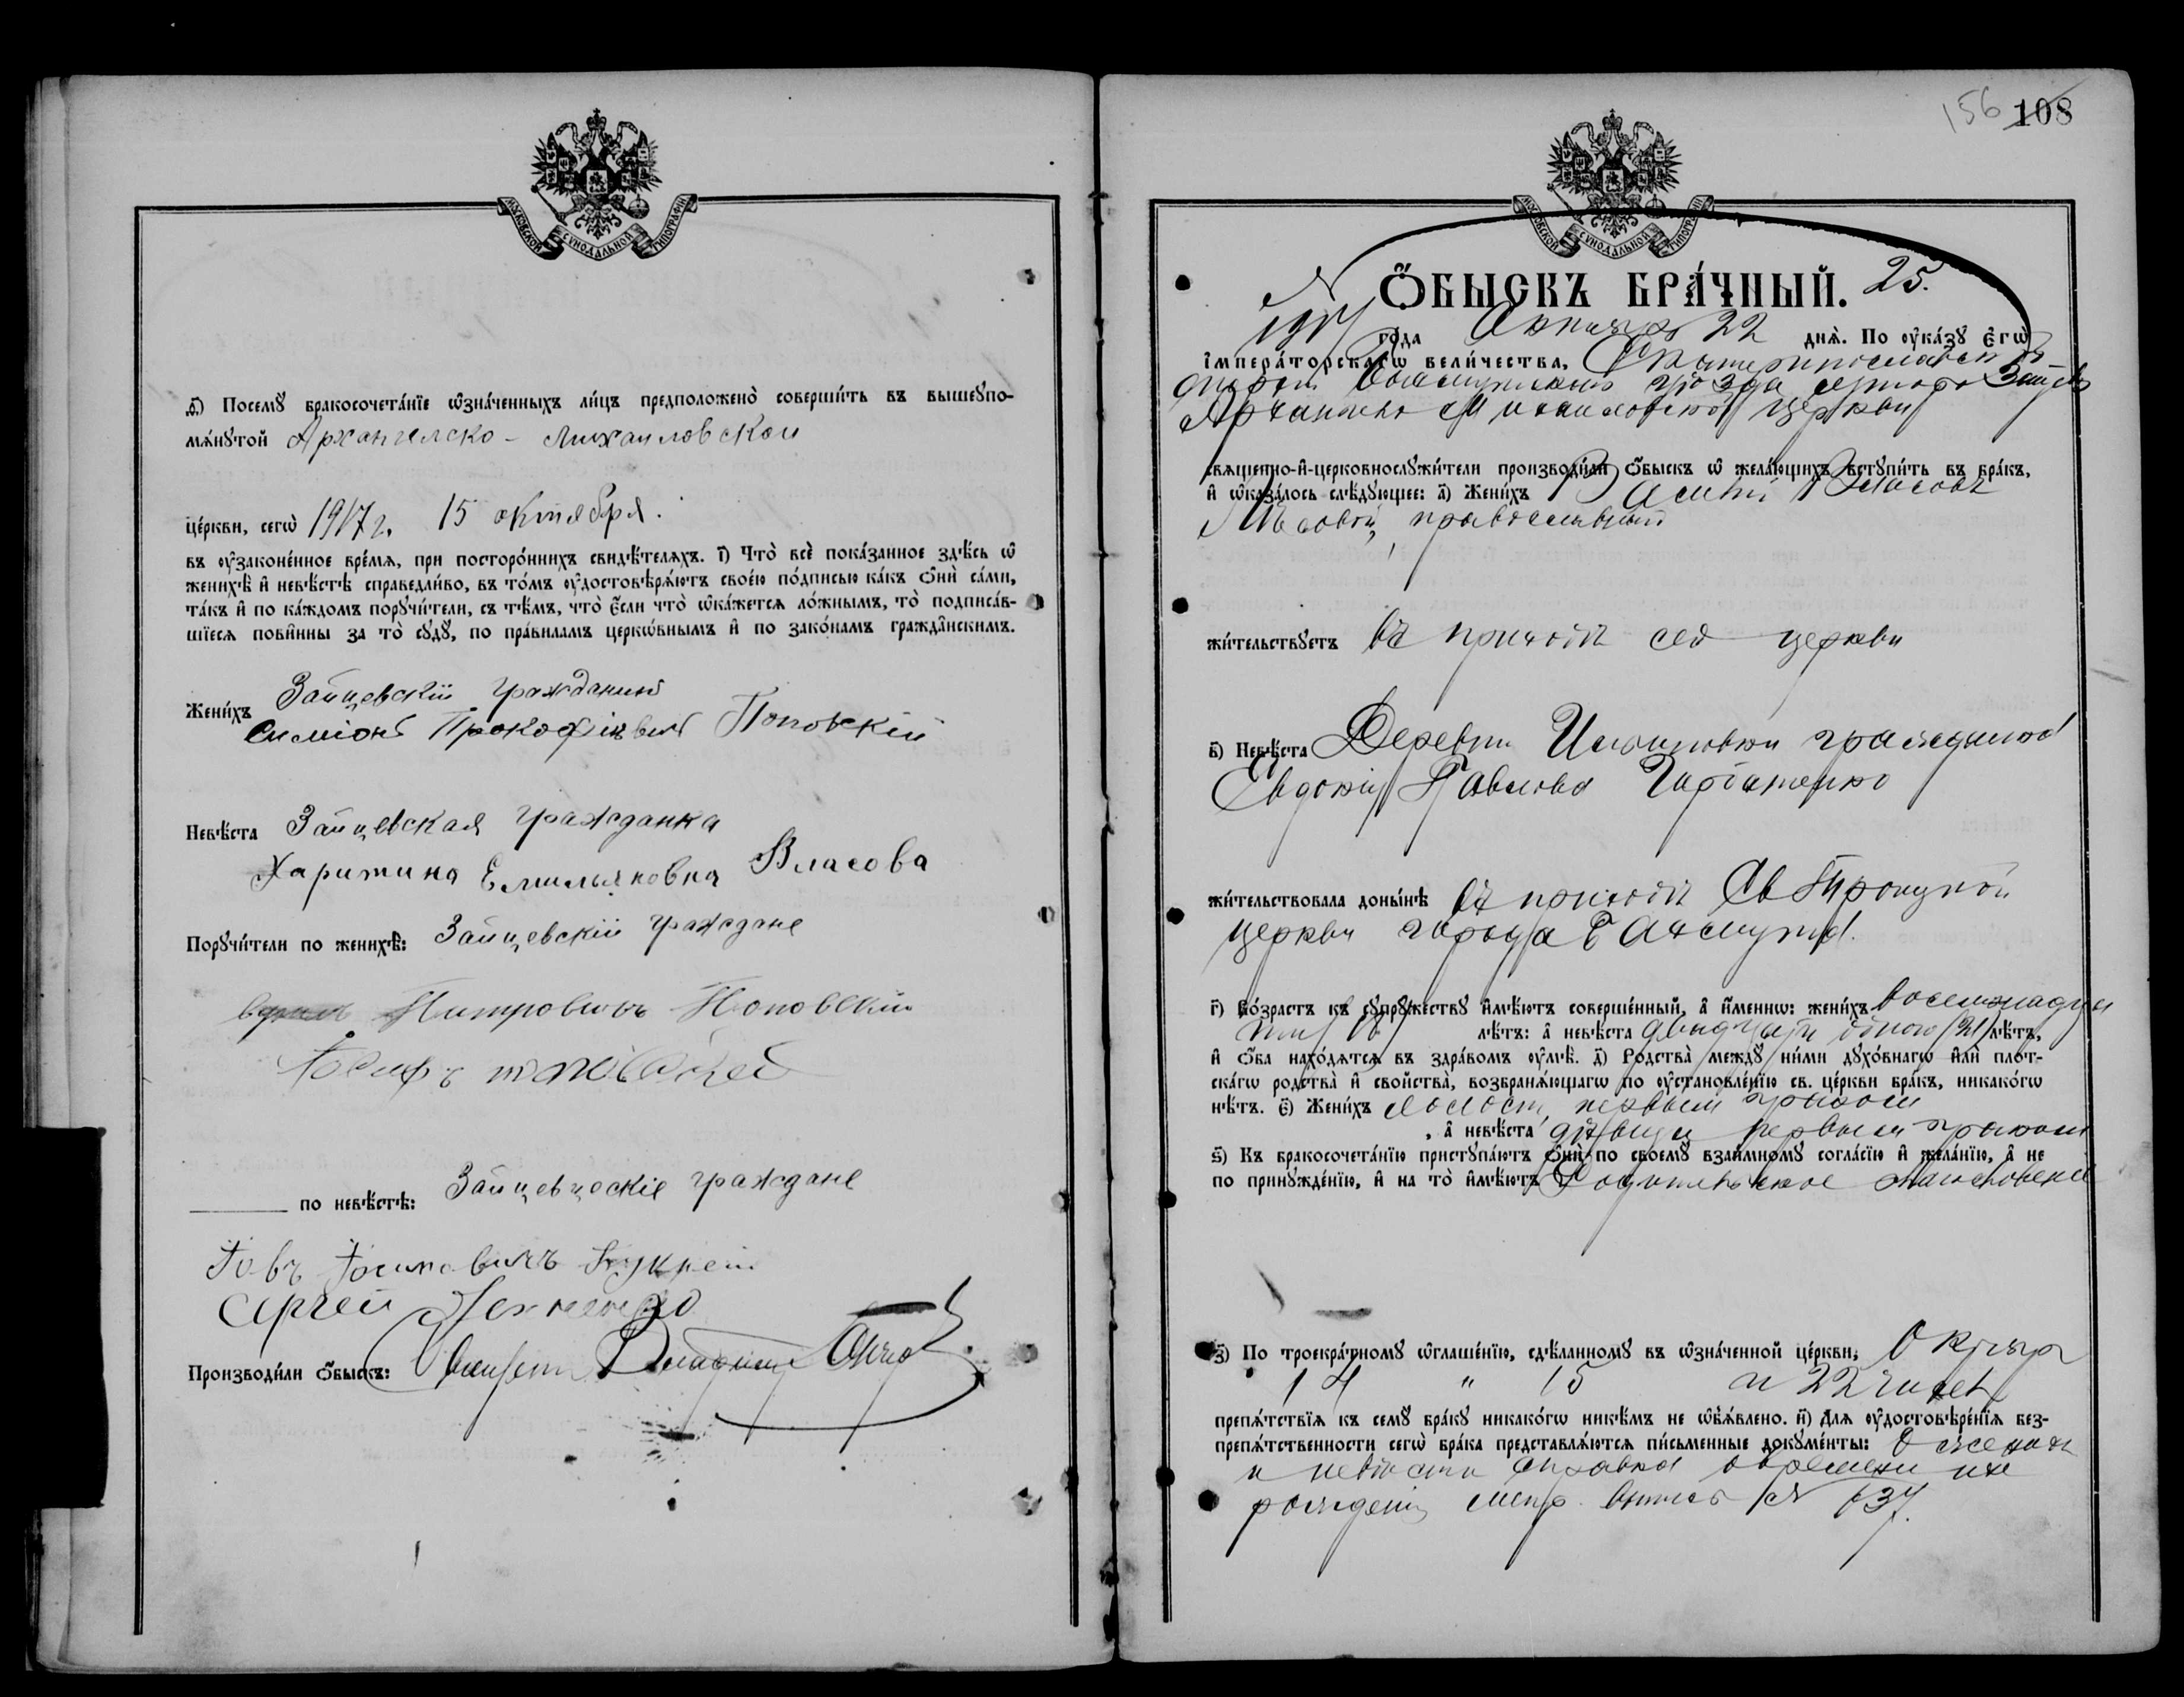 МОСКОВСКОЙ СѴНОДАЛЬНОЙ ТИПОГРАФІИ
ѳ҃) Посемꙋ бракосочета́нїе ѡ҆зна́ченныхъ ли́цъ предположено̀ соверши́ть въ вышеꙋпо-
мѧ́нꙋтой Архангелско - Михаиловской
це́ркви, сегѡ̀ 1917 г. 15 октября.
въ ᲂу҆законе́нное вре́мѧ, при посторо́ннихъ свидѣ́телѧхъ. і҃) Что̀ всѐ пока́занное здѣ́сь ѡ҆
женихѣ̀ и҆ невѣ́стѣ справедли́во, въ то́мъ ᲂу҆достовѣрѧ́ютъ свое́ю по́дписью ка́къ ѻ҆нѝ са́ми,
та́къ и҆ по ка́ждомъ порꙋчи́тели, съ тѣ́мъ, что̀ є҆́сли что̀ ѡ҆ка́жетсѧ ло́жнымъ, то̀ подписа́в-
шїесѧ пови́нны за то̀ сꙋдꙋ̀, по пра́виламъ церко́внымъ и҆ по зако́намъ гражда́нскимъ.
Жени́хъ Зайцевскій гражданинъ
Симіонъ Прокофіевич Поповскій
Невѣ́ста Зайцевская гражданка
Харитина Емильяновна Власова
Порꙋчи́тели по женихѣ̀: Зайцевскій граждане
Митровичъ Поповскій
Іосифъ
по невѣ́стѣ: Зайцевцескіе граждане
Іовъ Іосиповичъ
Сергей
Производи́ли ѻ҆́быскъ:
156 108
МОСКОВСКОЙ СѴНОДАЛЬНОЙ ТИПОГРАФІИ
Ѻ҆́БЫСКЪ БРА́ЧНЫЙ. 25.
№
1917 го́да Октября 22 днѧ̀. По ᲂу҆ка́зꙋ є҆гѡ̀
і҆мпера́торскагѡ вели́чества, Екатеринославской
епархіи Бахмутскаго уѣзда хутора Зайцева
Архангело Михаиловской церкви
свѧще́нно-и҆-церковнослꙋжи́тели производи́ли ѻ҆́быскъ ѡ҆ жела́ющихъ встꙋпи́ть въ бра́къ,
и҆ ѡ҆каза́лось слѣ́дꙋющее: а҃) Жени́хъ Власовъ
православный
жи́тельствꙋетъ въ приходѣ сей церкви
в҃) Невѣ́ста Деревни гражданка
Евдокія Павлова Гарбатенко
жи́тельствовала доны́нѣ въ приходѣ Св Троицкой
церкви города Бахмута.
г҃) Во́зрастъ къ сꙋпрꙋ́жествꙋ и҆мѣ́ютъ соверше́нный, а҆ и҆́менно: жени́хъ восемнадца
ти 18 лѣ́тъ: а҆ невѣ́ста двадцати одного (21) лѣ́тъ,
и҆ ѻ҆́ба нахо́дѧтсѧ въ здра́вомъ ᲂу҆мѣ̀. д҃) Родства̀ междꙋ̀ ни́ми дꙋхо́внагѡ и҆лѝ плот-
ска́гѡ родства̀ и҆ сво́йства, возбранѧ́ющагѡ по ᲂу҆становле́нїю св. це́ркви бра́къ, никако́гѡ
нѣ́тъ. є҃) Жени́хъ холостъ, первымъ бракомъ
, а҆ невѣ́ста дѣвица первымъ бракомъ
ѕ҃) Къ бракосочета́нїю пристꙋпа́ютъ ѻ҆нѝ по своемꙋ̀ взаи́мномꙋ согла́сїю и҆ жела́нїю, а҆ не
по принꙋжде́нїю, и҆ на то̀ и҆мѣ́ютъ Родительское благословеніе
з҃) По троекра́тномꙋ ѡ҆глаше́нїю, сдѣ́ланномꙋ въ ѡ҆зна́ченной це́ркви, Октября
14 " 15 и 22 чиселъ
препѧ́тствїѧ къ семꙋ̀ бра́кꙋ никако́гѡ никѣ́мъ не ѡ҆б̾ѧ́влено. и҃) Длѧ ᲂу҆достовѣре́нїѧ без-
препѧ́тственности сегѡ̀ бра́ка представлѧ́ютсѧ пи́сьменные докꙋме́нты: О женихѣ
и невѣстѣ справка о времени ихъ
рожденія метр. №